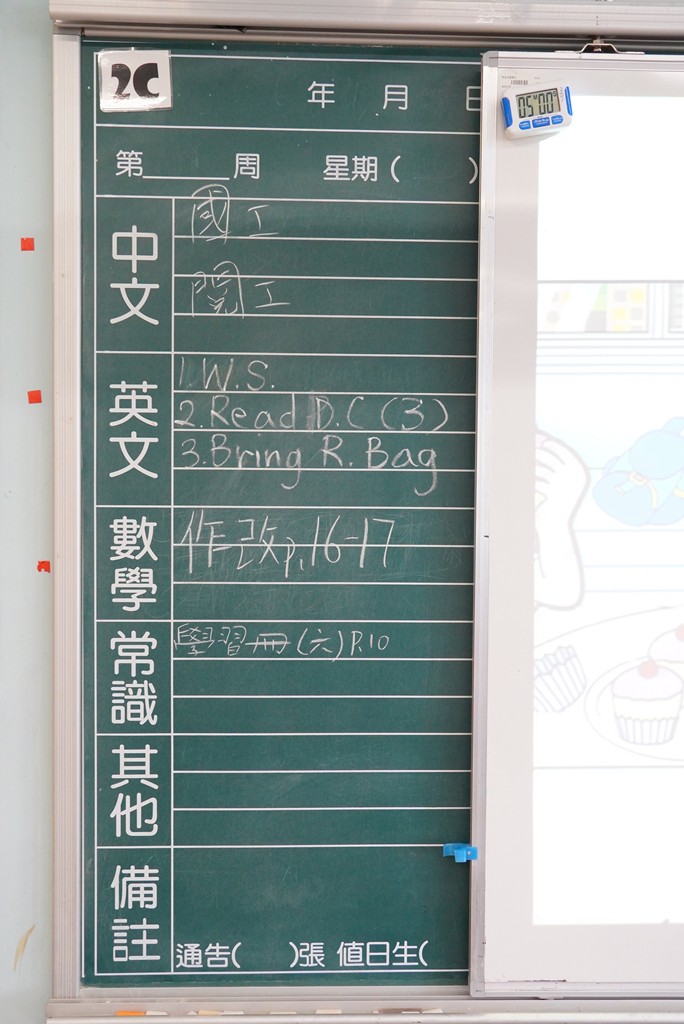 2C
年 月 日
05 00
第______周 星期( )
中文
國工
閱工
英文
1. W.S.
2. Read D.C (3)
3. Bring R. Bag
數學
作改p.16-17
常識
學習冊(六)P.10
其他
備註
通告( )張 值日生(